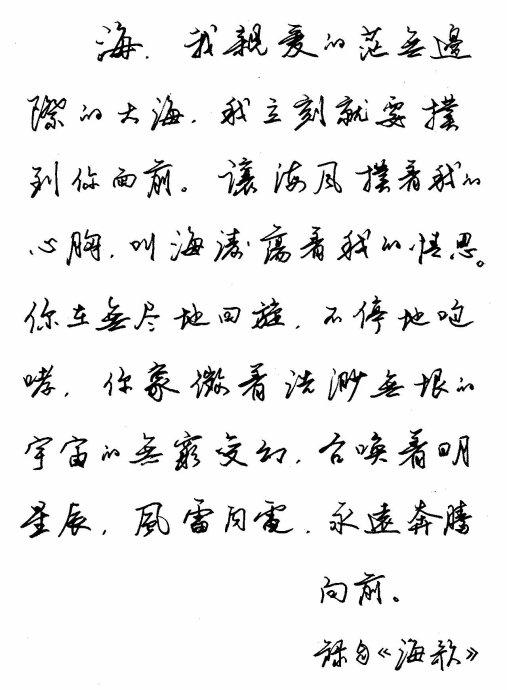 海，我親爱的茫無邊
際的大海，我立刻就要撲
到你面前。讓海风撲着我的
心胸，叫海涛蕩着我的情思。
你在無尽地回旋，不停地咆
哮，你象徵着浩渺無垠的
宇宙的無窮变幻，召唤着明
星辰，風雷闪電，永遠奔腾
向前。
録自《海歌》